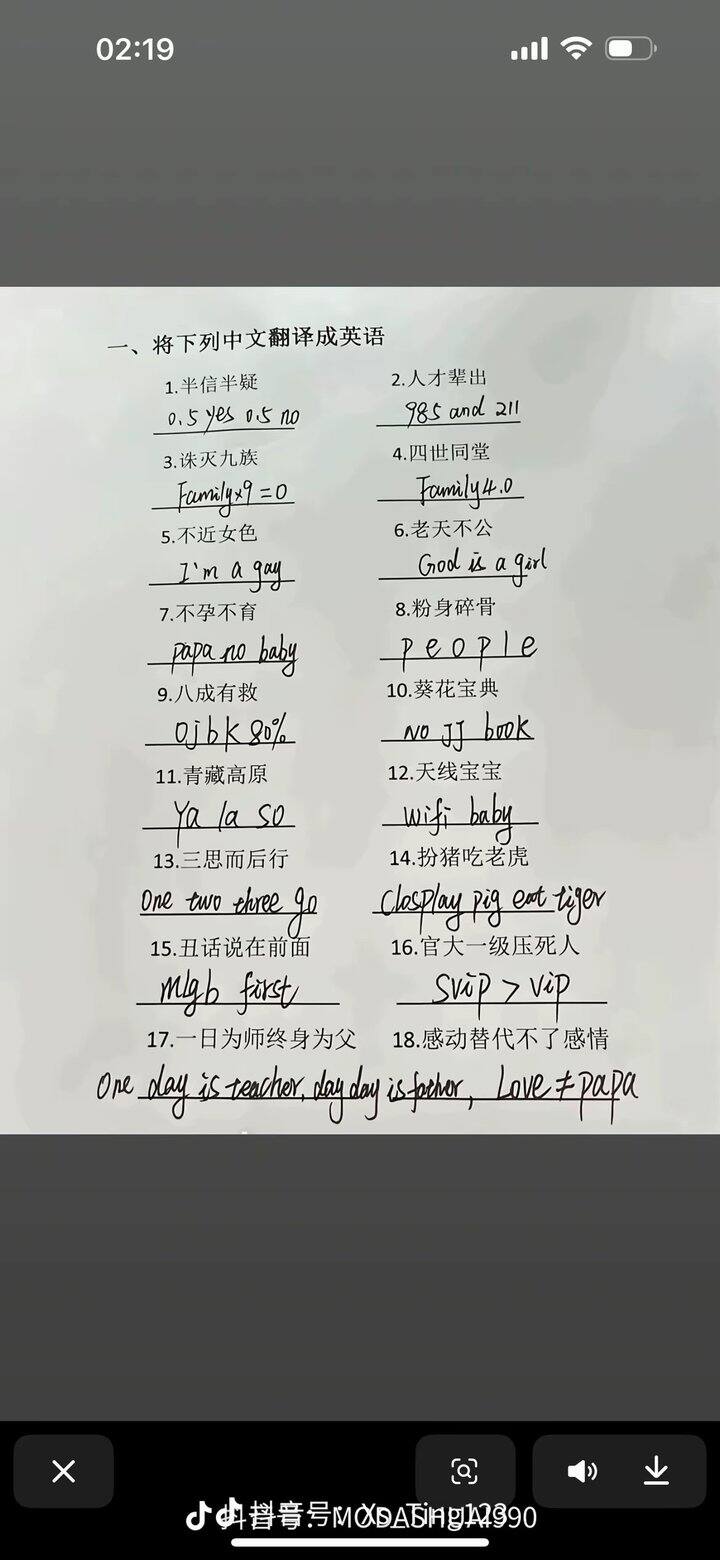 02:19
一、将下列中文翻译成英语
1.半信半疑 2.人才辈出
0.5 yes 0.5 no 985 and 211
3.诛灭九族 4.四世同堂
Family×9=0 Family4.0
5.不近女色 6.老天不公
I'm a gay God is a girl
7.不孕不育 8.粉身碎骨
papa no baby p e o p l e
9.八成有救 10.葵花宝典
Ojbk 80% No JJ book
11.青藏高原 12.天线宝宝
Ya la so wifi baby
13.三思而后行 14.扮猪吃老虎
One two three go Closplay pig eat tiger
15.丑话说在前面 16.官大一级压死人
Mlgb first svip > vip
17.一日为师终身为父 18.感动替代不了感情
One day is teacher, day day is father, Love ≠ papa
抖音号：